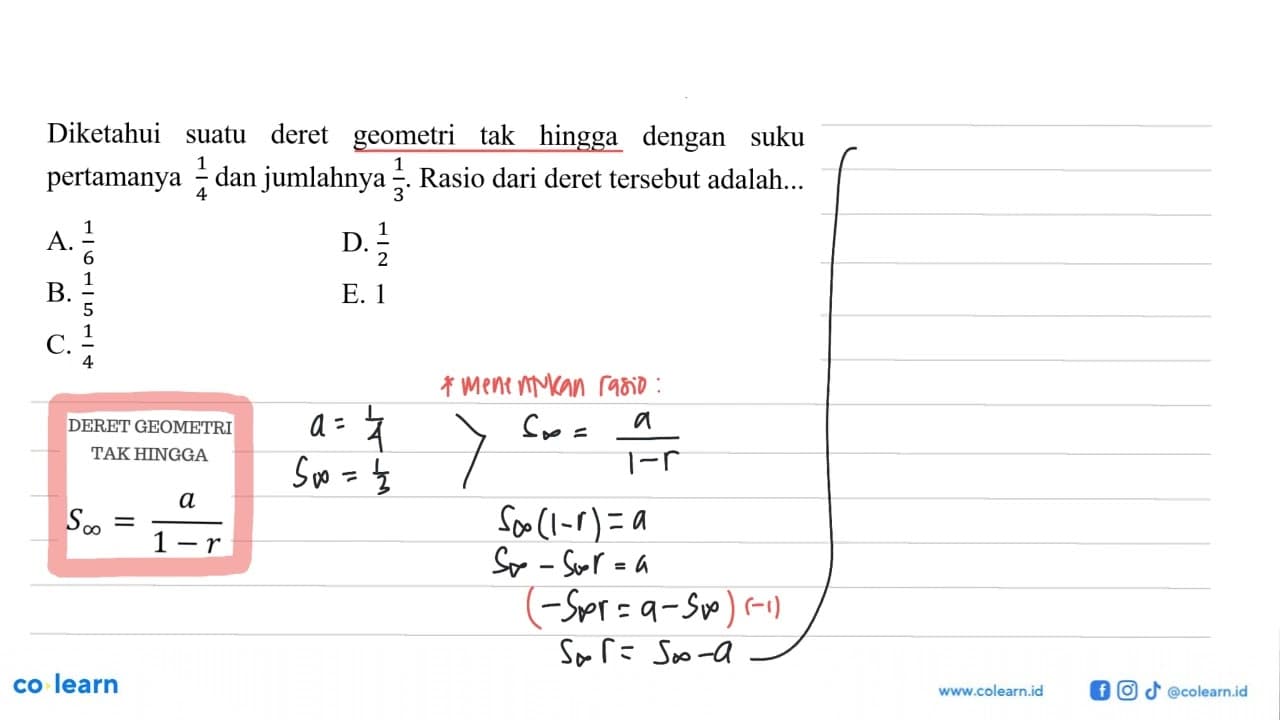 Diketahui suatu deret geometri tak hingga dengan suku
pertamanya 1/4 dan jumlahnya 1/3. Rasio dari deret tersebut adalah...
A. 1/6
D. 1/2
B. 1/5
E. 1
C. 1/4
* menentukan rasio :
DERET GEOMETRI
TAK HINGGA
S∞ = a/(1 − r)
a = 1/4
S∞ = 1/3
S∞ = a/(1−r)
S∞(1−r) = a
S∞ − S∞r = a
(−S∞r = a − S∞) (−1)
S∞r = S∞ − a
co learn
www.colearn.id
@colearn.id